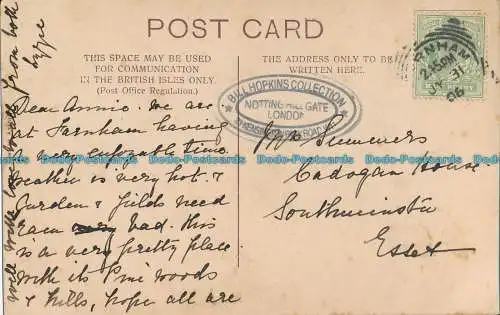 POST CARD
THIS SPACE MAY BE USED
FOR COMMUNICATION
IN THE BRITISH ISLES ONLY.
(Post Office Regulation.)
THE ADDRESS ONLY TO BE
WRITTEN HERE.
Dear Annie. We are
at Farnham having
a very enjoyable time
weather is very hot. &
Garden & fields need
rain very bad. this
is a very pretty place
with its Pine woods
& hills, hope all are
well with love
from both
BILL HOPKINS COLLECTION
NOTTING HILL GATE
LONDON
Mrs Summers
Cadogan House
Southminster
Essex
RNHAM
2.45PM
JY 31
06
Dodo-Postcards Dodo-Postcards Dodo-Postcards Dodo-Postcards